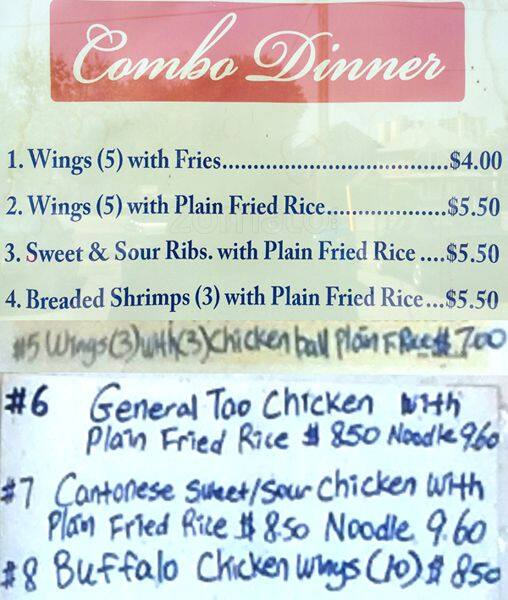 Combo Dinner
1. Wings (5) with Fries..............................$4.00
2. Wings (5) with Plain Fried Rice..................$5.50
3. Sweet & Sour Ribs. with Plain Fried Rice ....$5.50
4. Breaded Shrimps (3) with Plain Fried Rice...$5.50
#5 Wings(3) with(3) Chicken ball Plain F Rice $ 7.00
#6 General Tao Chicken with
Plain Fried Rice $ 8.50 Noodle 9.60
#7 Cantonese Sweet/Sour Chicken with
Plain Fried Rice $ 8.50 Noodle 9.60
#8 Buffalo Chicken wings (10) $ 850